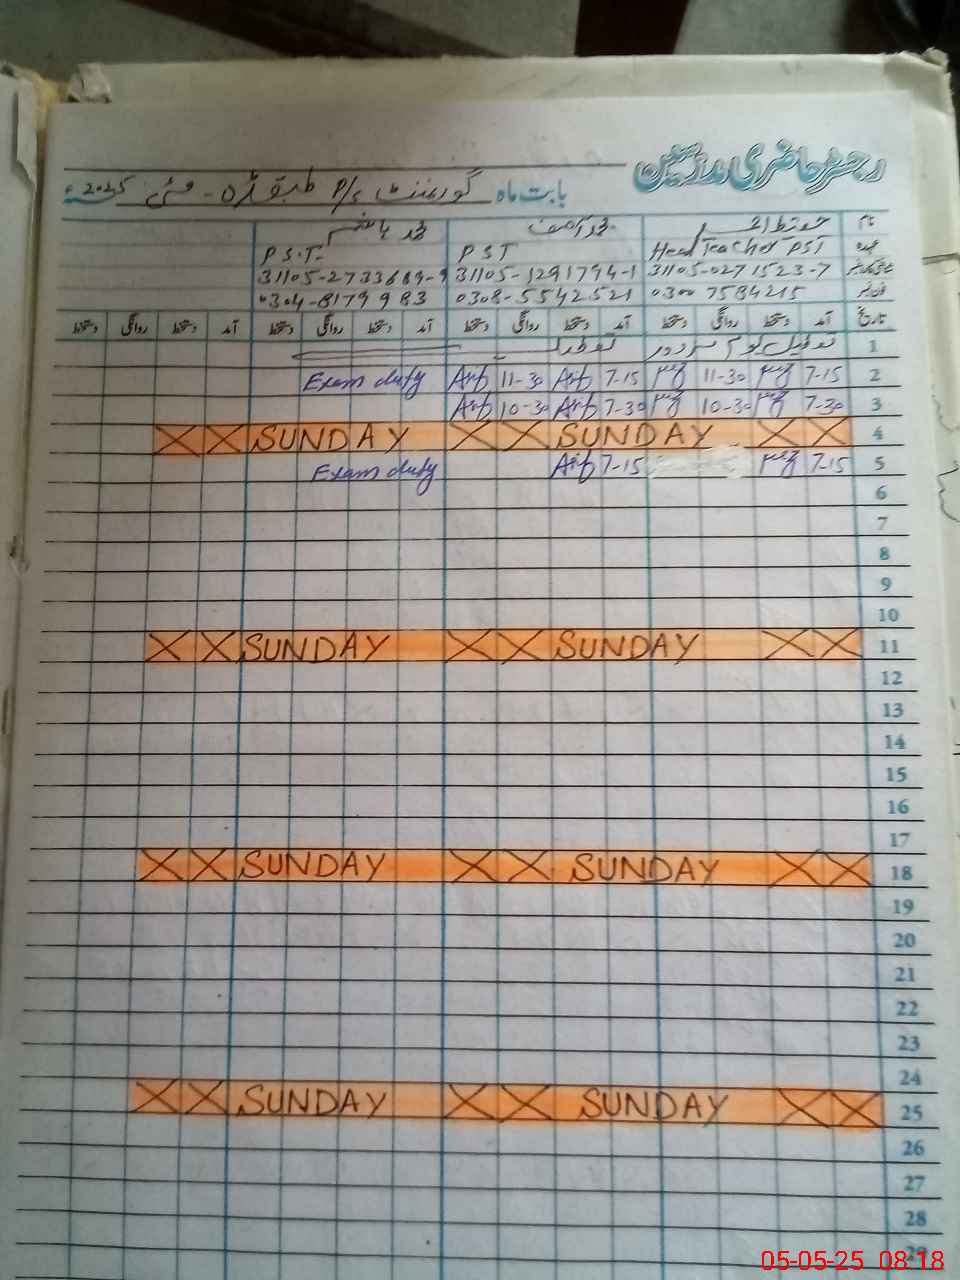 رجسٹر حاضری مدرسین
بابت ماہ گورنمنٹ P/S طبقرڈہ - مئی 2025ء
نام محمد آصف محمد ہاشم
عہدہ Head Teacher PST PST P.S.T-
31105-0271523-7 31105-1291794-1 31105-2733689-9
فون نمبر 0300 7584215 0308-5542521 0304-8179983
تاریخ آمد دستخط روانگی دستخط آمد دستخط روانگی دستخط آمد دستخط روانگی دستخط آمد دستخط روانگی دستخط
1 تعطیل یوم مزدور تعطیل
2 7-15 11-30 7-15 Arif 11-30 Arif Exam duty
3 7-30 10-30 7-30 Arif 10-30 Arif
4 SUNDAY SUNDAY
5 7-15 7-15 Arif Exam duty
6
7
8
9
10
11 SUNDAY SUNDAY
12
13
14
15
16
17
18 SUNDAY SUNDAY
19
20
21
22
23
24
25 SUNDAY SUNDAY
26
27
28
29
05-05-25 08:18